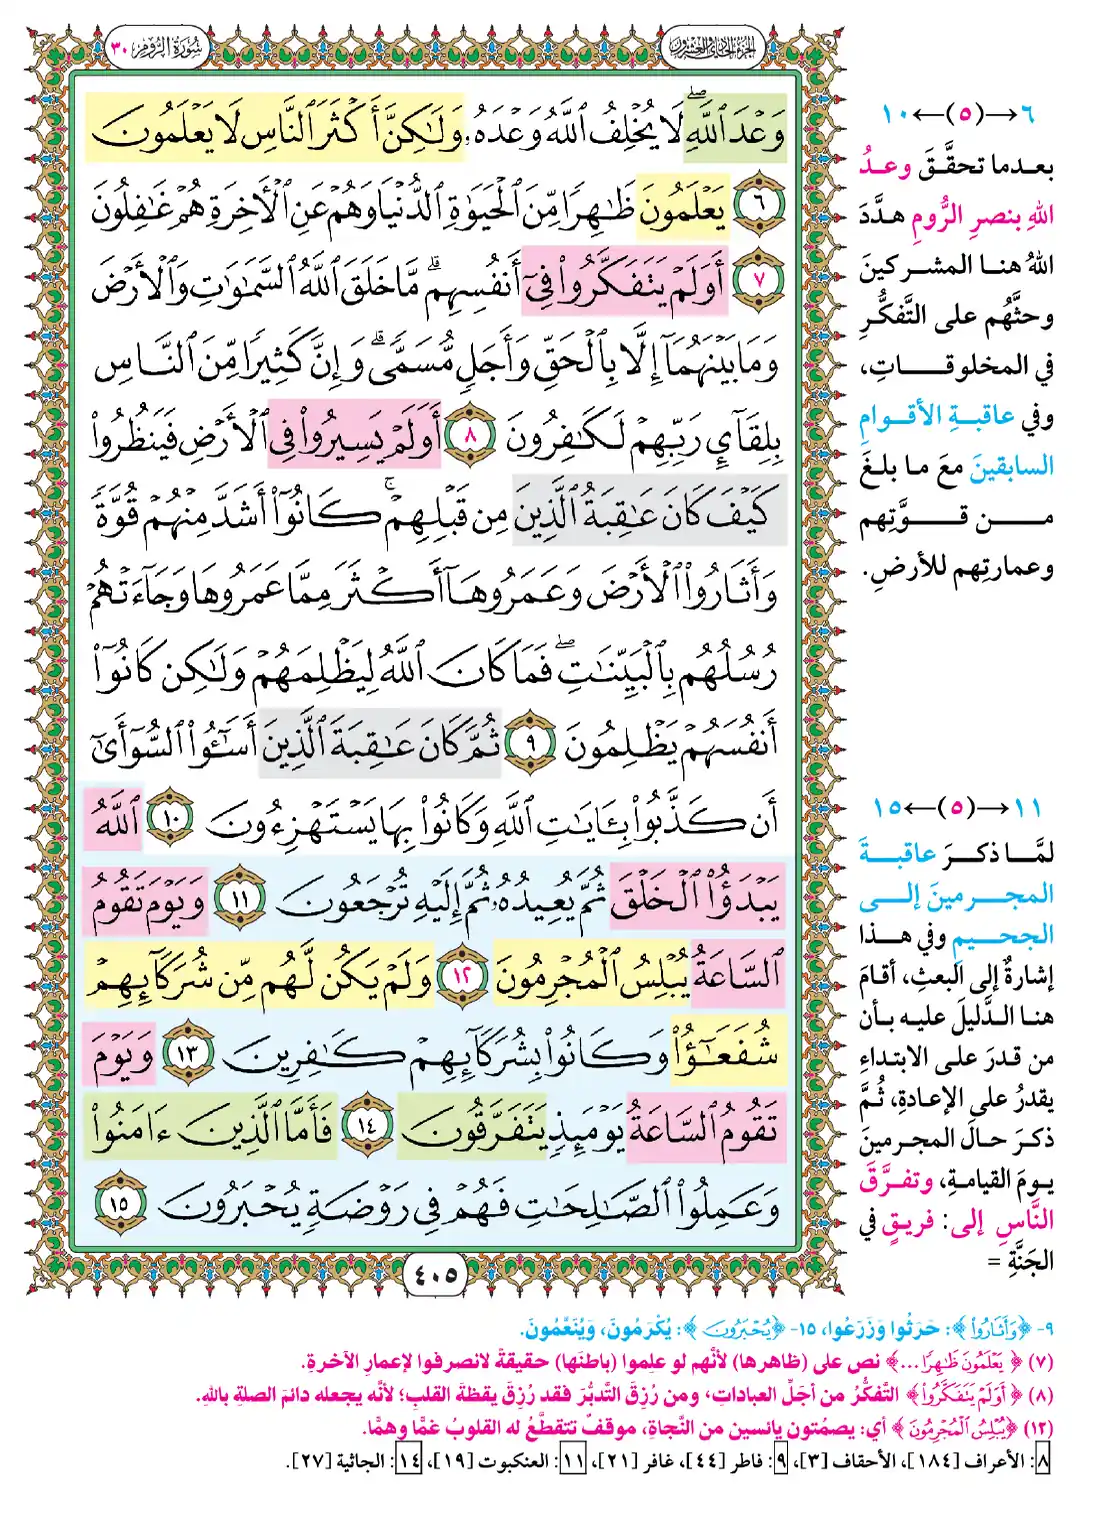 الجزء الحادي والعشرون
سورة الروم ٣٠
وَعْدَ ٱللَّهِۖ لَا يُخْلِفُ ٱللَّهُ وَعْدَهُۥ وَلَٰكِنَّ أَكْثَرَ ٱلنَّاسِ لَا يَعْلَمُونَ
٦ يَعْلَمُونَ ظَٰهِرًا مِّنَ ٱلْحَيَوٰةِ ٱلدُّنْيَا وَهُمْ عَنِ ٱلْأَخِرَةِ هُمْ غَٰفِلُونَ
٧ أَوَلَمْ يَتَفَكَّرُوا۟ فِىٓ أَنفُسِهِمۗ مَّا خَلَقَ ٱللَّهُ ٱلسَّمَٰوَٰتِ وَٱلْأَرْضَ
وَمَا بَيْنَهُمَآ إِلَّا بِٱلْحَقِّ وَأَجَلٍ مُّسَمًّىۗ وَإِنَّ كَثِيرًا مِّنَ ٱلنَّاسِ
بِلِقَآئِ رَبِّهِمْ لَكَٰفِرُونَ ٨ أَوَلَمْ يَسِيرُوا۟ فِى ٱلْأَرْضِ فَيَنظُرُوا۟
كَيْفَ كَانَ عَٰقِبَةُ ٱلَّذِينَ مِن قَبْلِهِمْۚ كَانُوٓا۟ أَشَدَّ مِنْهُمْ قُوَّةً
وَأَثَارُوا۟ ٱلْأَرْضَ وَعَمَرُوهَآ أَكْثَرَ مِمَّا عَمَرُوهَا وَجَآءَتْهُمْ
رُسُلُهُم بِٱلْبَيِّنَٰتِۖ فَمَا كَانَ ٱللَّهُ لِيَظْلِمَهُمْ وَلَٰكِن كَانُوٓا۟
أَنفُسَهُمْ يَظْلِمُونَ ٩ ثُمَّ كَانَ عَٰقِبَةَ ٱلَّذِينَ أَسَٰٓـُٔوا۟ ٱلسُّوٓأَىٰٓ
أَن كَذَّبُوا۟ بِـَٔايَٰتِ ٱللَّهِ وَكَانُوا۟ بِهَا يَسْتَهْزِءُونَ ١٠ ٱللَّهُ
يَبْدَؤُا۟ ٱلْخَلْقَ ثُمَّ يُعِيدُهُۥ ثُمَّ إِلَيْهِ تُرْجَعُونَ ١١ وَيَوْمَ تَقُومُ
ٱلسَّاعَةُ يُبْلِسُ ٱلْمُجْرِمُونَ ١٢ وَلَمْ يَكُن لَّهُم مِّن شُرَكَآئِهِمْ
شُفَعَٰٓؤُا۟ وَكَانُوا۟ بِشُرَكَآئِهِمْ كَٰفِرِينَ ١٣ وَيَوْمَ
تَقُومُ ٱلسَّاعَةُ يَوْمَئِذٍ يَتَفَرَّقُونَ ١٤ فَأَمَّا ٱلَّذِينَ ءَامَنُوا۟
وَعَمِلُوا۟ ٱلصَّٰلِحَٰتِ فَهُمْ فِى رَوْضَةٍ يُحْبَرُونَ ١٥
٤٠٥
٦→(٥)←١٠
بعدما تحقَّقَ وعدُ
اللهِ بنصرِ الرُّومِ هدَّدَ
اللهُ هنا المشركينَ
وحثَّهُم على التَّفكُّرِ
في المخلوقاتِ،
وفي عاقبةِ الأقوامِ
السابقينَ معَ ما بلغَ
من قوَّتِهم
وعمارتِهم للأرضِ.
١١→(٥)←١٥
لمَّا ذكرَ عاقبةَ
المجرمينَ إلى
الجحيمِ وفي هذا
إشارةٌ إلى البعثِ، أقامَ
هنا الدَّليلَ عليه بأن
من قدرَ على الابتداءِ
يقدرُ على الإعادةِ، ثُمَّ
ذكرَ حالَ المجرمينَ
يومَ القيامةِ، وتفرَّقَ
النَّاسِ إلى: فريقٍ في
الجَنَّةِ =
٩- ﴿وَأَثَارُوا۟﴾: حَرَثُوا وَزَرَعُوا، ١٥- ﴿يُحْبَرُونَ﴾: يُكْرَمُونَ، وَيُنَعَّمُونَ.
(٧) ﴿يَعْلَمُونَ ظَٰهِرًا...﴾ نص على (ظاهرها) لأنَّهم لو علموا (باطنَها) حقيقةً لانصرفوا لإعمارِ الآخرةِ.
(٨) ﴿أَوَلَمْ يَتَفَكَّرُوا۟﴾ التَّفكُّرُ من أجَلِّ العباداتِ، ومن رُزِقَ التدبُّرَ فقد رُزِقَ يقظةَ القلبِ؛ لأنَّه يجعله دائمَ الصلةِ باللهِ.
(١٢) ﴿يُبْلِسُ ٱلْمُجْرِمُونَ﴾ أي: يصمُتون يائسين من النَّجاةِ، موقفٌ تتقطَّعُ له القلوبُ غمًّا وهمًّا.
٨: الأعراف [١٨٤]، الأحقاف [٣]، ٩: فاطر [٤٤]، غافر [٢١]، ١١: العنكبوت [١٩]، ١٤: الجاثية [٢٧].